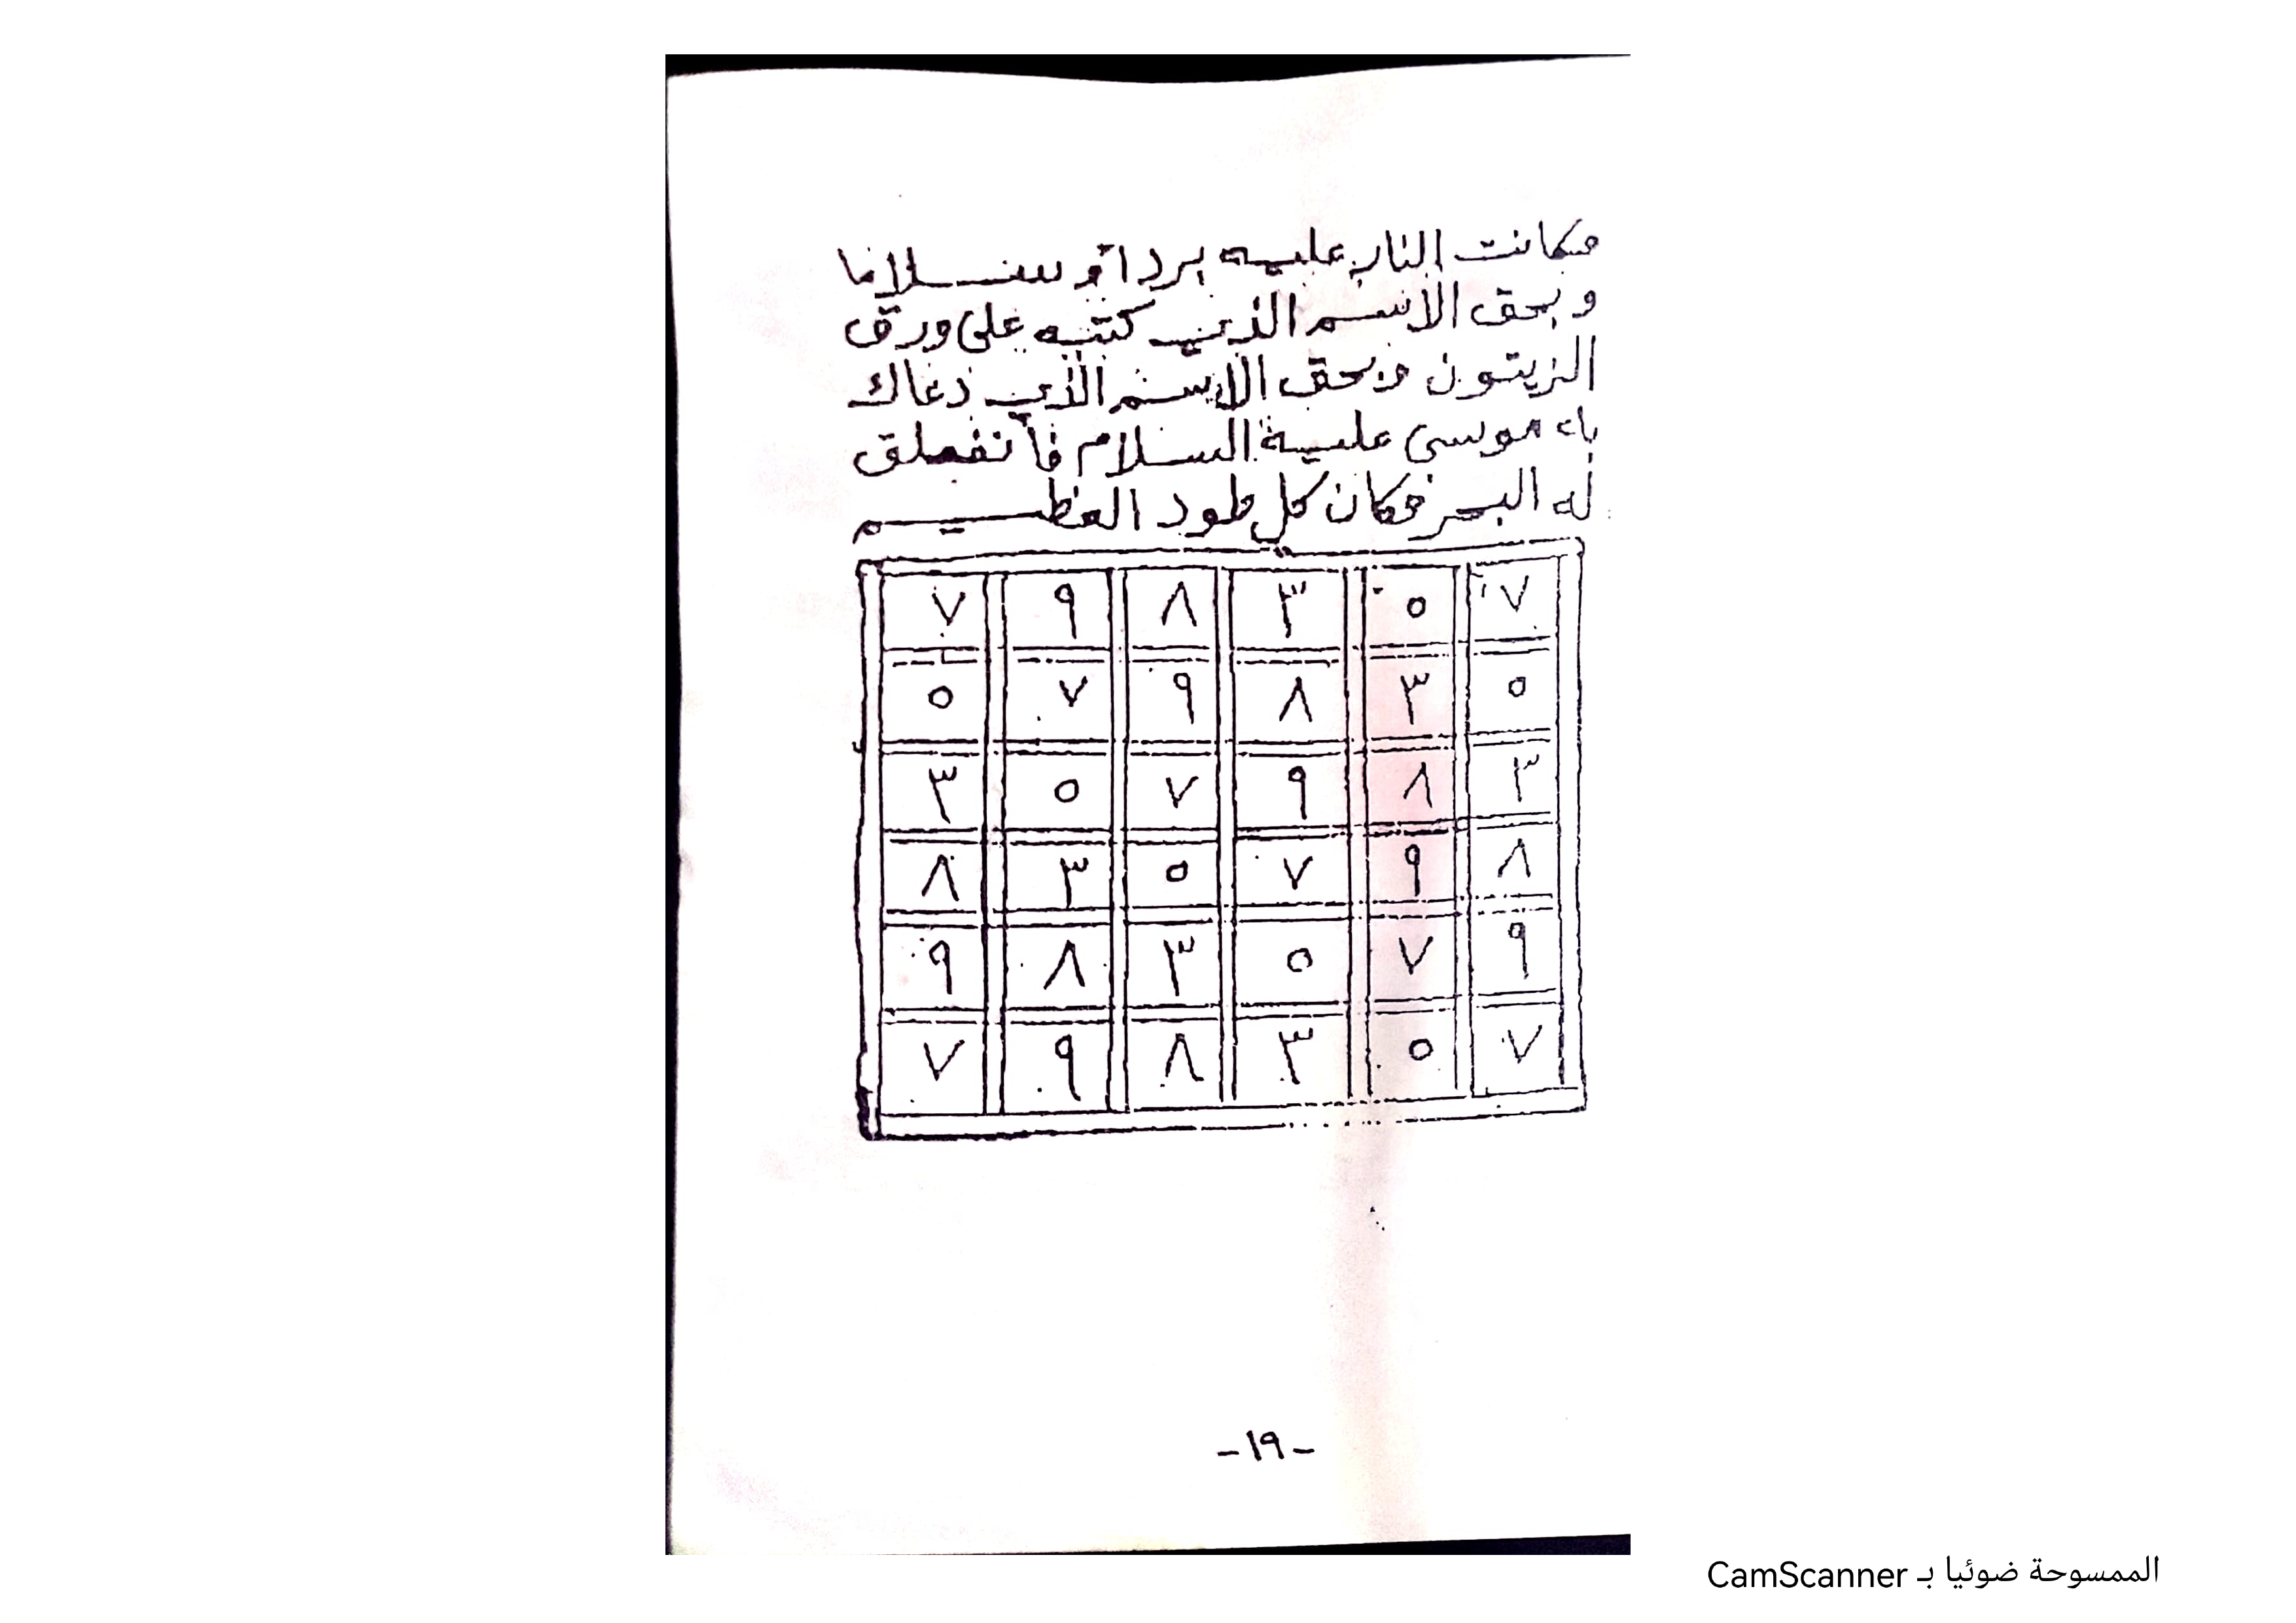 فكانت النار عليه بردا و سلاما
و بحق الاسم الذي كتبه على ورق
الزيتون وبحق الاسم الذي دعاك
به موسى عليه السلام فأنفلق
له البحر فكان كل طود العظيم
٧ ٥ ٣ ٨ ٩ ٧
٥ ٣ ٨ ٩ ٧ ٥
٣ ٨ ٩ ٧ ٥ ٣
٨ ٩ ٧ ٥ ٣ ٨
٩ ٧ ٥ ٣ ٨ ٩
٧ ٥ ٣ ٨ ٩ ٧
-١٩-
الممسوحة ضوئيا بـ CamScanner